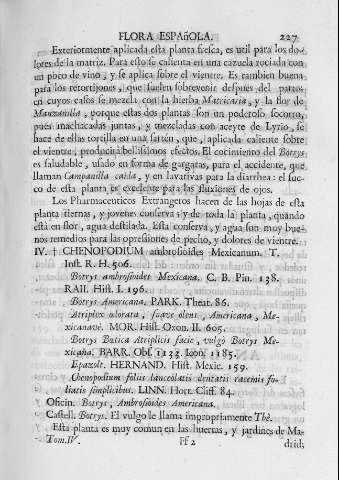 FLORA ESPAñOLA. 227
Exteriormente aplicada esta planta fresca, es util para los do-
lores de la matriz. Para esto se calienta en una cazuela rociada con
un poco de vino, y se aplica sobre el vientre. Es tambien buena
para los retortijones, que suelen sobrevenir despues del parto:
en cuyos casos se mezcla con la hierba Matricaria, y la flor de
Manzanilla, porque estas dos plantas son un poderoso socorro,
pues machacadas juntas, y mezcladas con aceyte de Lyrio, se
hace de ellas tortilla en una sartén, que, aplicada caliente sobre
el vientre, producirá bellisimos efectos. El cocimiento del Botrys
es saludable, usado en forma de gargaras, para el accidente, que
llaman Campanilla caida, y en lavativas para la diarrhea: el su-
co de esta planta es excelente para las fluxiones de ojos.
Los Pharmaceuticos Extrangeros hacen de las hojas de esta
planta tiernas, y jovenes conserva; y de toda la planta, quando
está en flor, agua destilada. Esta conserva, y agua son muy bue-
nos remedios para las opresiones de pecho, y dolores de vientre.
IV. † CHENOPODIUM ambrosioides Mexicanum. T.
Inst. R. H. 506.
Botrys ambrosioides Mexicana. C. B. Pin. 138.
RAII. Hist. I. 196.
Botrys Americana. PARK. Theat. 86.
Atriplex odorata, suave olens, Americana, Me-
xicana. MOR. Hist. Oxon. II. 605.
Botrys Batica Atriplicis facie, vulgò Botrys Me-
xicana. BARR. Obs. 1133. Icon. 1185.
Epazolt. HERNAND. Hist. Mexic. 159.
Chenopodium foliis lanceolatis dentatis racemis fo-
liatis simplicibus. LINN. Hort. Cliff. 84.
Oficin. Botrys, Ambrosioides Americana.
Castell. Botrys. El vulgo le llama impropriamente Thé.
Esta planta es muy comun en las huertas, y jardines de Ma-
Tom. IV. Ff 2 drid;